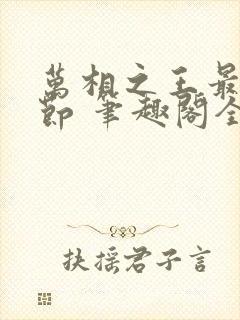 萬相之王最
節 筆趣閣全
扶摇君子言